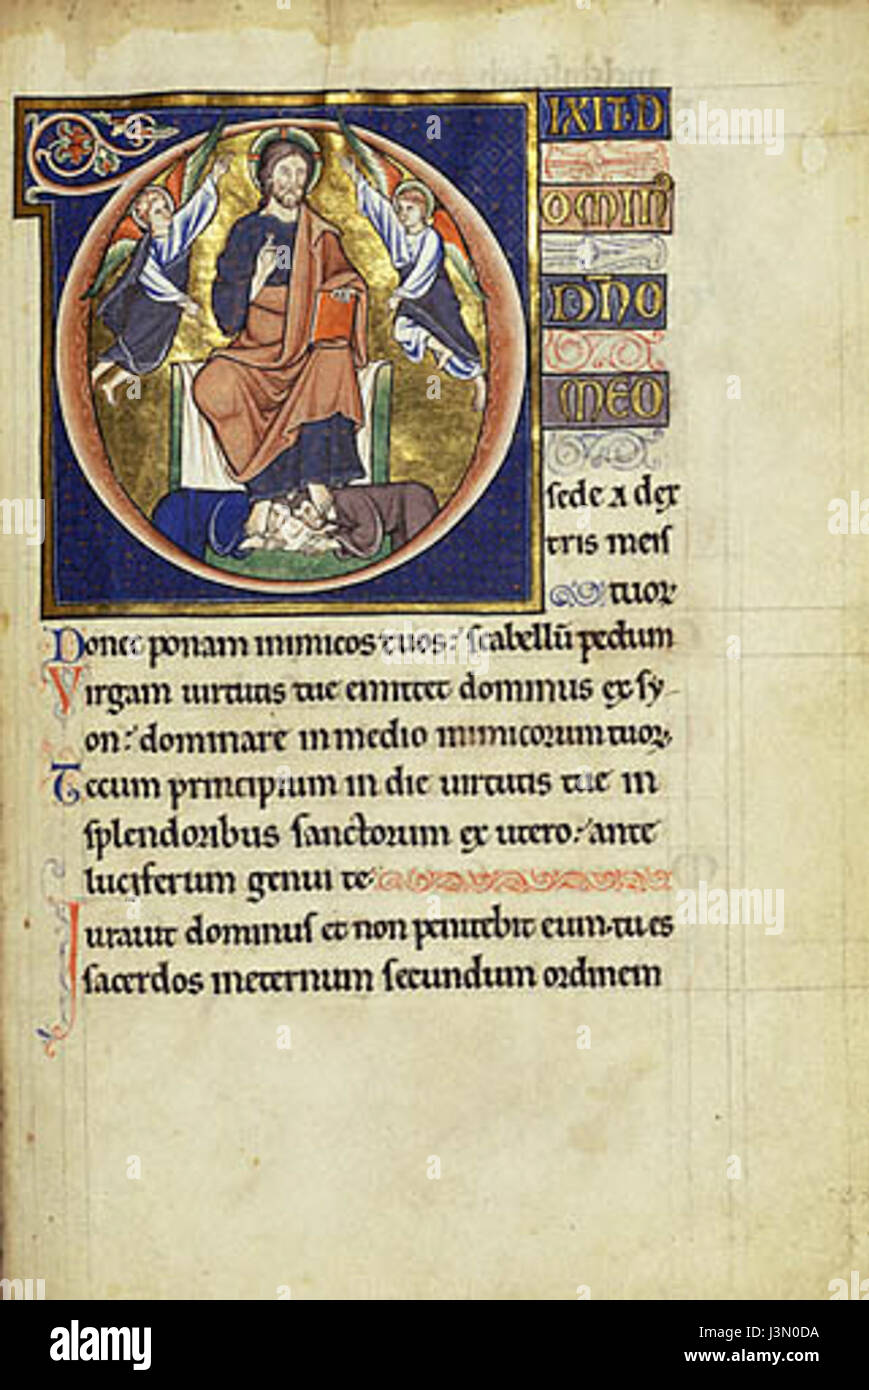 DIXIT D
OMIN
DNO
MEO
sede a dex
tris meis
tuor
Donec ponam inimicos tuos: scabellū pedum
Virgam uirtutis tue emittet dominus ex sy
on: dominare in medio inimicorum tuor.
Tecum principium in die uirtutis tue in
splendoribus sanctorum ex utero: ante
luciferum genui te.
Iurauit dominus et non penitebit eum. tu es
sacerdos ineternum secundum ordinem
alamy
Image ID: J3N0DA
www.alamy.com